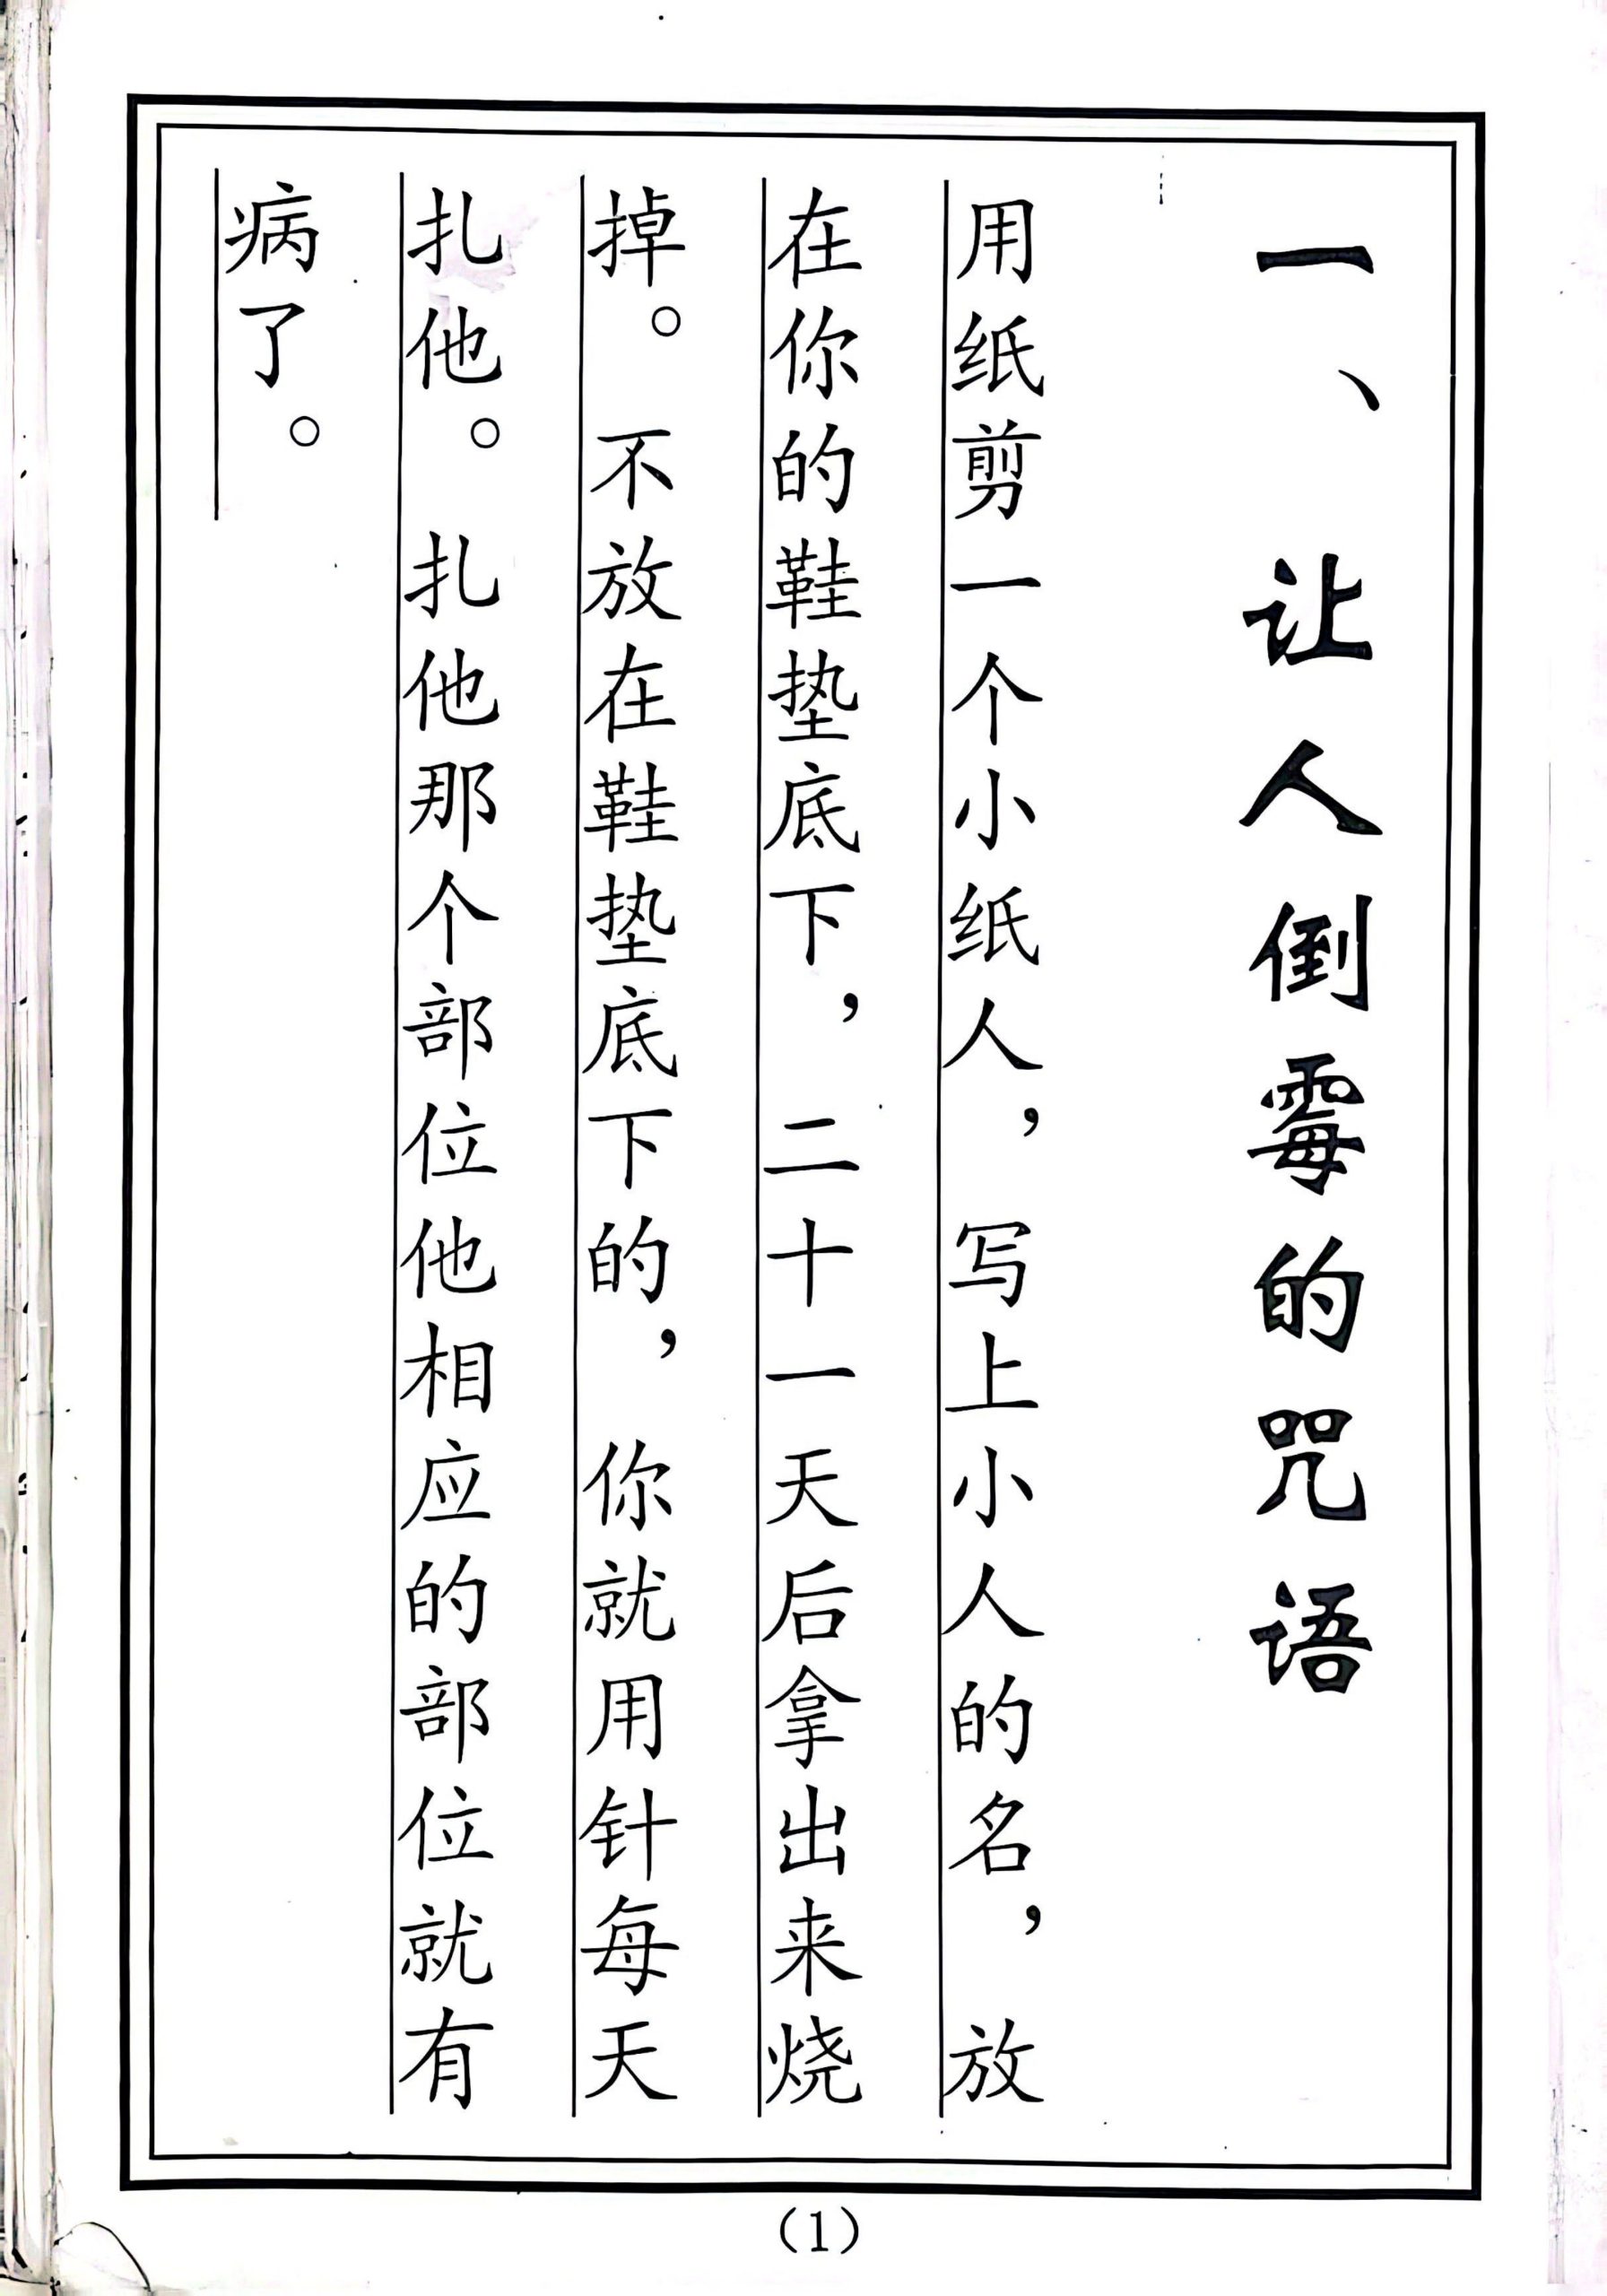 一、让人倒霉的咒语
用纸剪一个小纸人，写上小人的名，放
在你的鞋垫底下，二十一天后拿出来烧
掉。不放在鞋垫底下的，你就用针每天
扎他。扎他那个部位他相应的部位就有
病了。
(1)